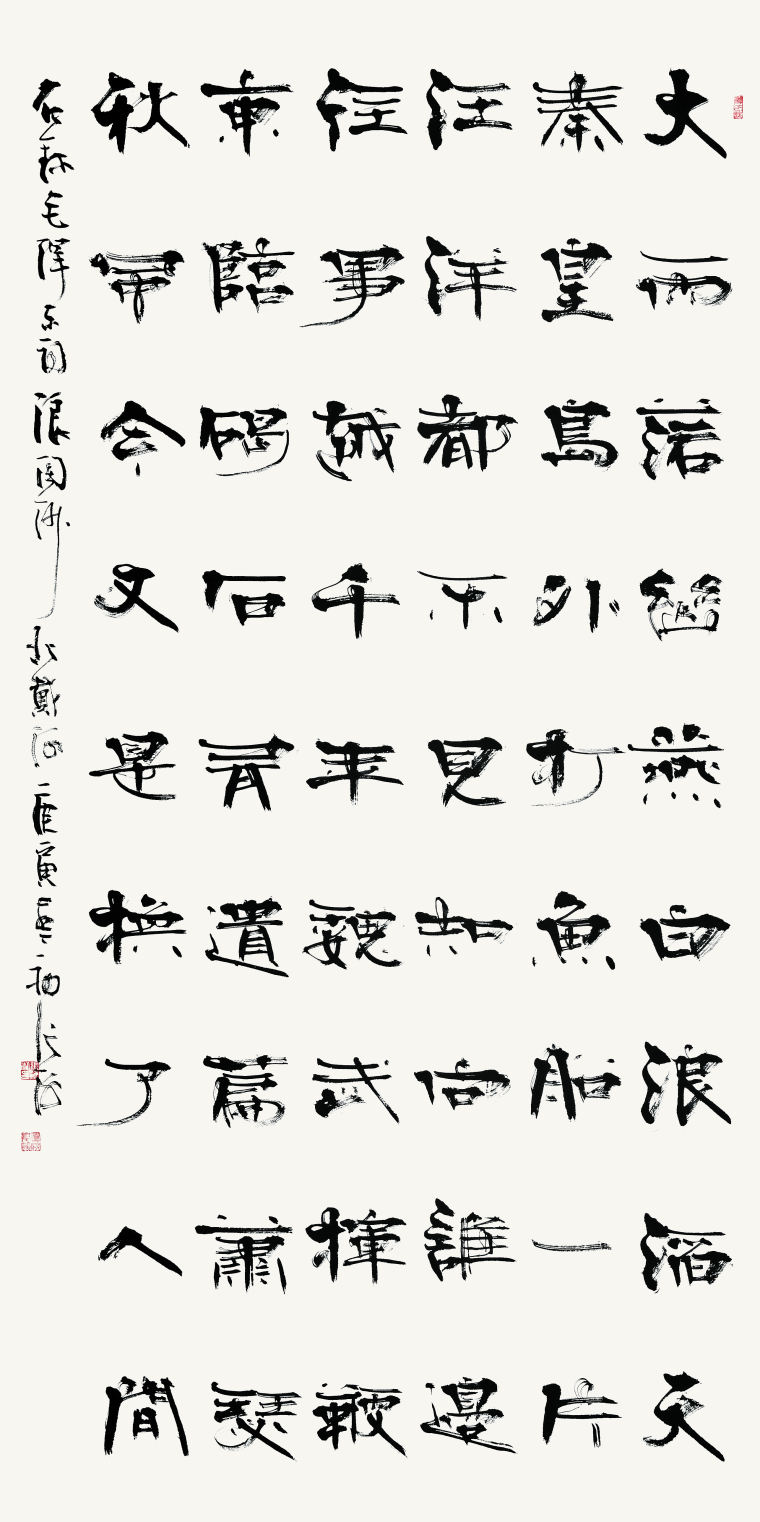 大雨落幽燕白浪滔天
秦皇島外打魚船一片
汪洋都不見知向誰邊
往事越千年魏武揮鞭
東臨碣石有遺篇蕭瑟
秋風今又是換了人間
右録毛澤东詞浪淘沙北戴河庚寅春初